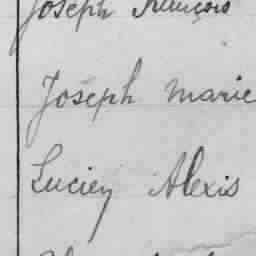 Joseph François
Joseph Marie
Lucien Alexis